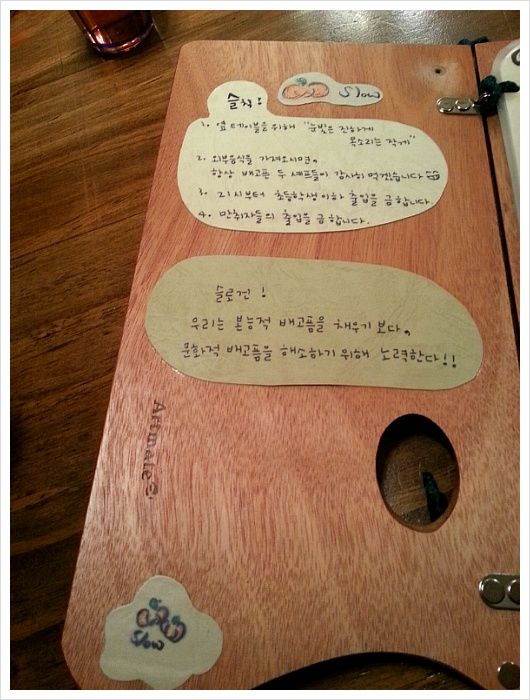 Slow
슬칙:
1. 옆 테이블을 위해 "눈빛은 진하게
목소리는 작게"
2. 외부음식을 가져오시면,
항상 배고픈 두 셰프들이 감사히 먹겠습니다
3. 21시부터 초등학생 이하 출입을 금합니다.
4. 만취자들의 출입을 금합니다.
슬로건!
우리는 본능적 배고픔을 채우기 보다,
문화적 배고픔을 해소하기 위해 노력한다!!
Artmate
Slow